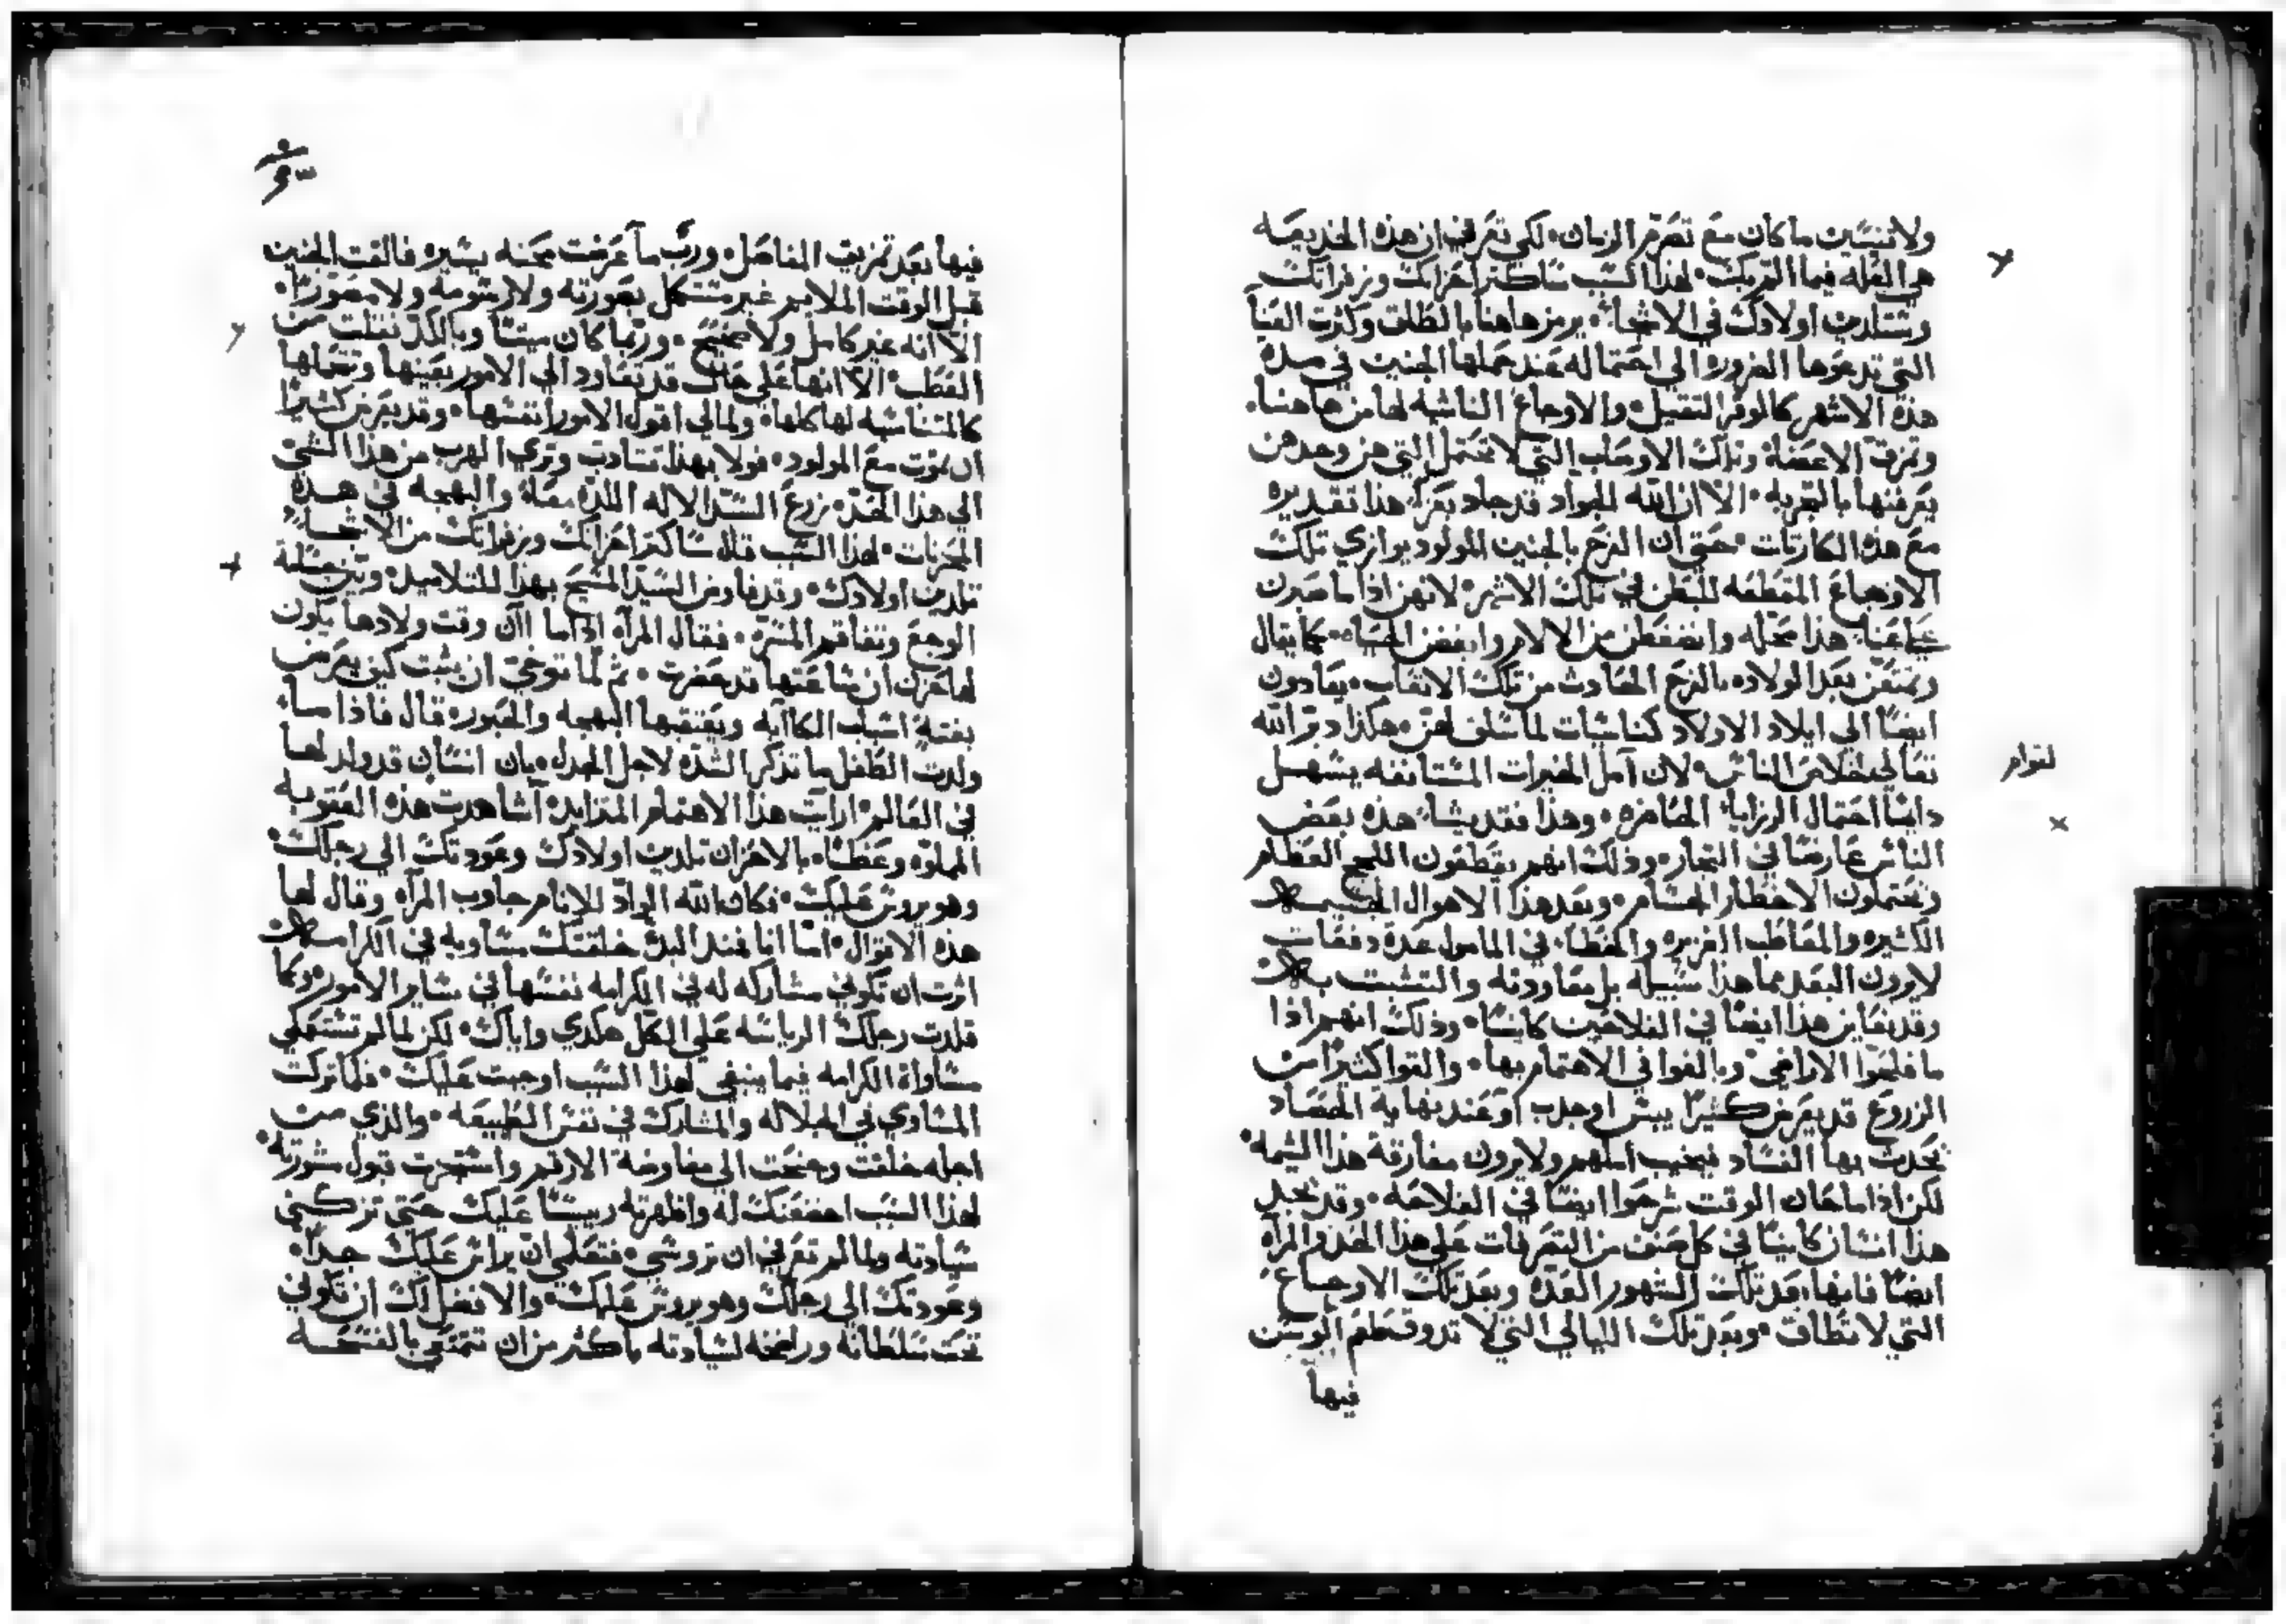 ولا تنسين ما كان مع تصرم الزمان، لكي تعرفي ان هذه الخديعه
هي العله فيما الم بك، لهذا السبب ساكثر احزانك وزفراتك
وستلدين اولادك في الاشجاء، يرمز هاهنا بالطلق وكثرت العنا
التي تدعوها الضروره الي احتماله عند حملها الجنين في مده
هذه الاشهر كالوقر الثقيل، والاوجاع الناشيه لها من هاهنا.
وتمزق الاعضاء وتلك الاوصاب التي لا تحتمل التي هن وحدهن
يعرفنها بالتجربه، الا ان الله الجواد قد جاد بعزاء هذا تقديره
مع هذه الكارثات، حتي ان الفرح بالجنين المولود يوازي تلك
الاوجاع المقطعه للبطن في تلك الاشهر، لانهن اذا ما صبرن
علي عناء هذا محله وانضغطن من الالام وابغضن الحياه، كما يقال
وتمتعن بعد الولاده بالفرح الحادث من تلك الاتعاب، يعاودن
ايضا الي ايلاد الاولاد كناسيات لما سلف لهن، هكذا دبر الله
تعالي خلاص الناس، لان امل الخيرات المستانفه يسهل
دايما احتمال الرزايا الحاضره، وهذا فقد يشاهده بعض
الناس عارضا في التجار، وذلك انهم يقطعون اللجج العظام
ويحتملون الاخطار الجسام، وبعد هذا الاهوال
الكثيره والمعاطب الغزيره والخطاء في المامول عدة دفعات
لا يرون البعد عما هذا سبيله بل معاودته والتشبت به
وقد يعاين هذا ايضا في الفلاحين كاينا، وذلك انهم اذا
ما فلحوا الاراضي وبالغوا في الاهتمام بها، والقوا كثيرا من
الزروع قد يعرض كثيرا يبس او جدب او عند نهاية الحصاد
يحدث بها الفساد فيخيب املهم ولا يرون مفارقة هذا الشيمه
لكن اذا ما حان الوقت شرعوا ايضا في الفلاحه، وقد يجد
هذا انسان كاينا في كل صنف من التصرفات علي هذا الحذو المراه
ايضا فانها بعد تلك الشهور العده وبعد تلك الاوجاع
التي لا تطاق، وبعد تلك الليالي التي لا تذوق طعم الوسن
فيها
لغوامر
فيها بعد تمزيق المفاصل، ورب ما عرضت محنه يسيره فالقت الجنين
قبل الوقت الملايم غير متشكل بصورته ولا مرسومه ولا مصورا.
الا انه غير كامل ولا صحيح، وربما كان ميتا وبالكد تفلت من
العطب، الا انها علي حال قد تعاود الي الامور بعينها وتتحملها
كالمتناسيه لها كلها، ولمالي اقول الامور انفسها، وقد يعرض كثيرا
ان تموت مع المولود، فولا بهذا تتادب وتري الهرب من هذا الشي
الي هذا الحد، زرع السيد الاله اللذه معا والبهجه في هذه
الحزنات، لهذا السبب قال ساكثر احزانك وزفراتك من الاشجاء
تلدين اولادك، وقد فاوض السيد المسيح بهذا للتلاميذ، وبين جسامة
الوجع وتفاقم المسره، فقال المراه اذا ما اان وقت ولادها يكون
لها حزن ان ساعتها قد حضرت، ثم لما توخي ان يثبت كيف يعرض
بغتة اسباب الكاابه ويعقبها البهجه والحبور، قال فاذا ما
ولدت الطفل ما تذكر الشده لاجل الجدل، بان انسان قد ولد لها
في العالم، ارايت هذا الاهتمام المتزايد، اشاهدت هذه العقوبه
المملوه وعظا، بالاحزان تلدين اولادك وعودتك الي رجلك
وهو يروس عليك، فكان الله الواد للانام جاوب المراه وقال لها
هذه الاقوال، اما انا فمنذ البدء خلقتك مساويه في الكرامه
اثرت ان تكوني مشاركه له في الكرامه نفسها في ساير الامور، وكما
قلدت رجلك الرياسه علي الكل هكدي واياك، لكن لما لم تستعملي
مساواة الكرامه فيما ينبغي لهذا السبب اوجبت عليك، فلما تركت
المساوي في الجلاله والمشارك في نفس الطبيعه، والذي من
اجله خلقت وجنحت الي مفاوضة الارقم واستجزت قبول مشورته،
لهذا السبب اخضعتك له واظهرته رييسا عليك حتي تزكني
سيادته ولما لم تعرفي ان تروسي، فتعلمي ان يراس عليك جيدا،
وعودتك الي رجلك وهو يروس عليك، والافضل لك ان تكوني
تحت سلطانه وراضخه لسيادته باكثر من ان تتمتعي بالفسحه